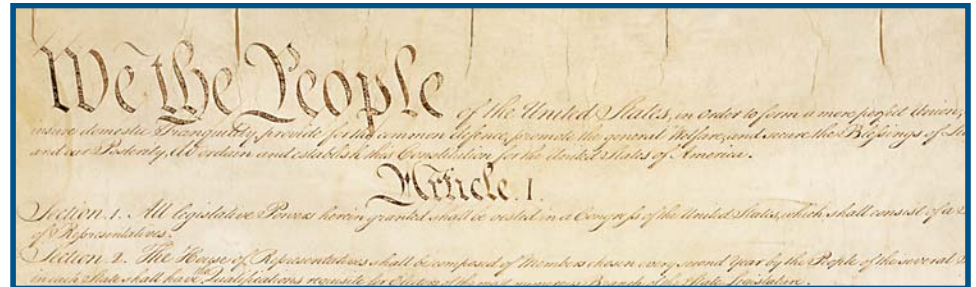 We the People of the United States, in Order to form a more perfect Union,
insure domestic Tranquility, provide for the common defence, promote the general Welfare, and secure the Blessings of
and our Posterity, do ordain and establish this Constitution for the United States of America.
Article. I.
Section. 1. All legislative Powers herein granted shall be vested in a Congress of the United States, which shall consist of a
of Representatives.
Section. 2. The House of Representatives shall be composed of Members chosen every second Year by the People of the several
in each State shall have the Qualifications requisite for Electors of the most numerous Branch of the State Legislature.